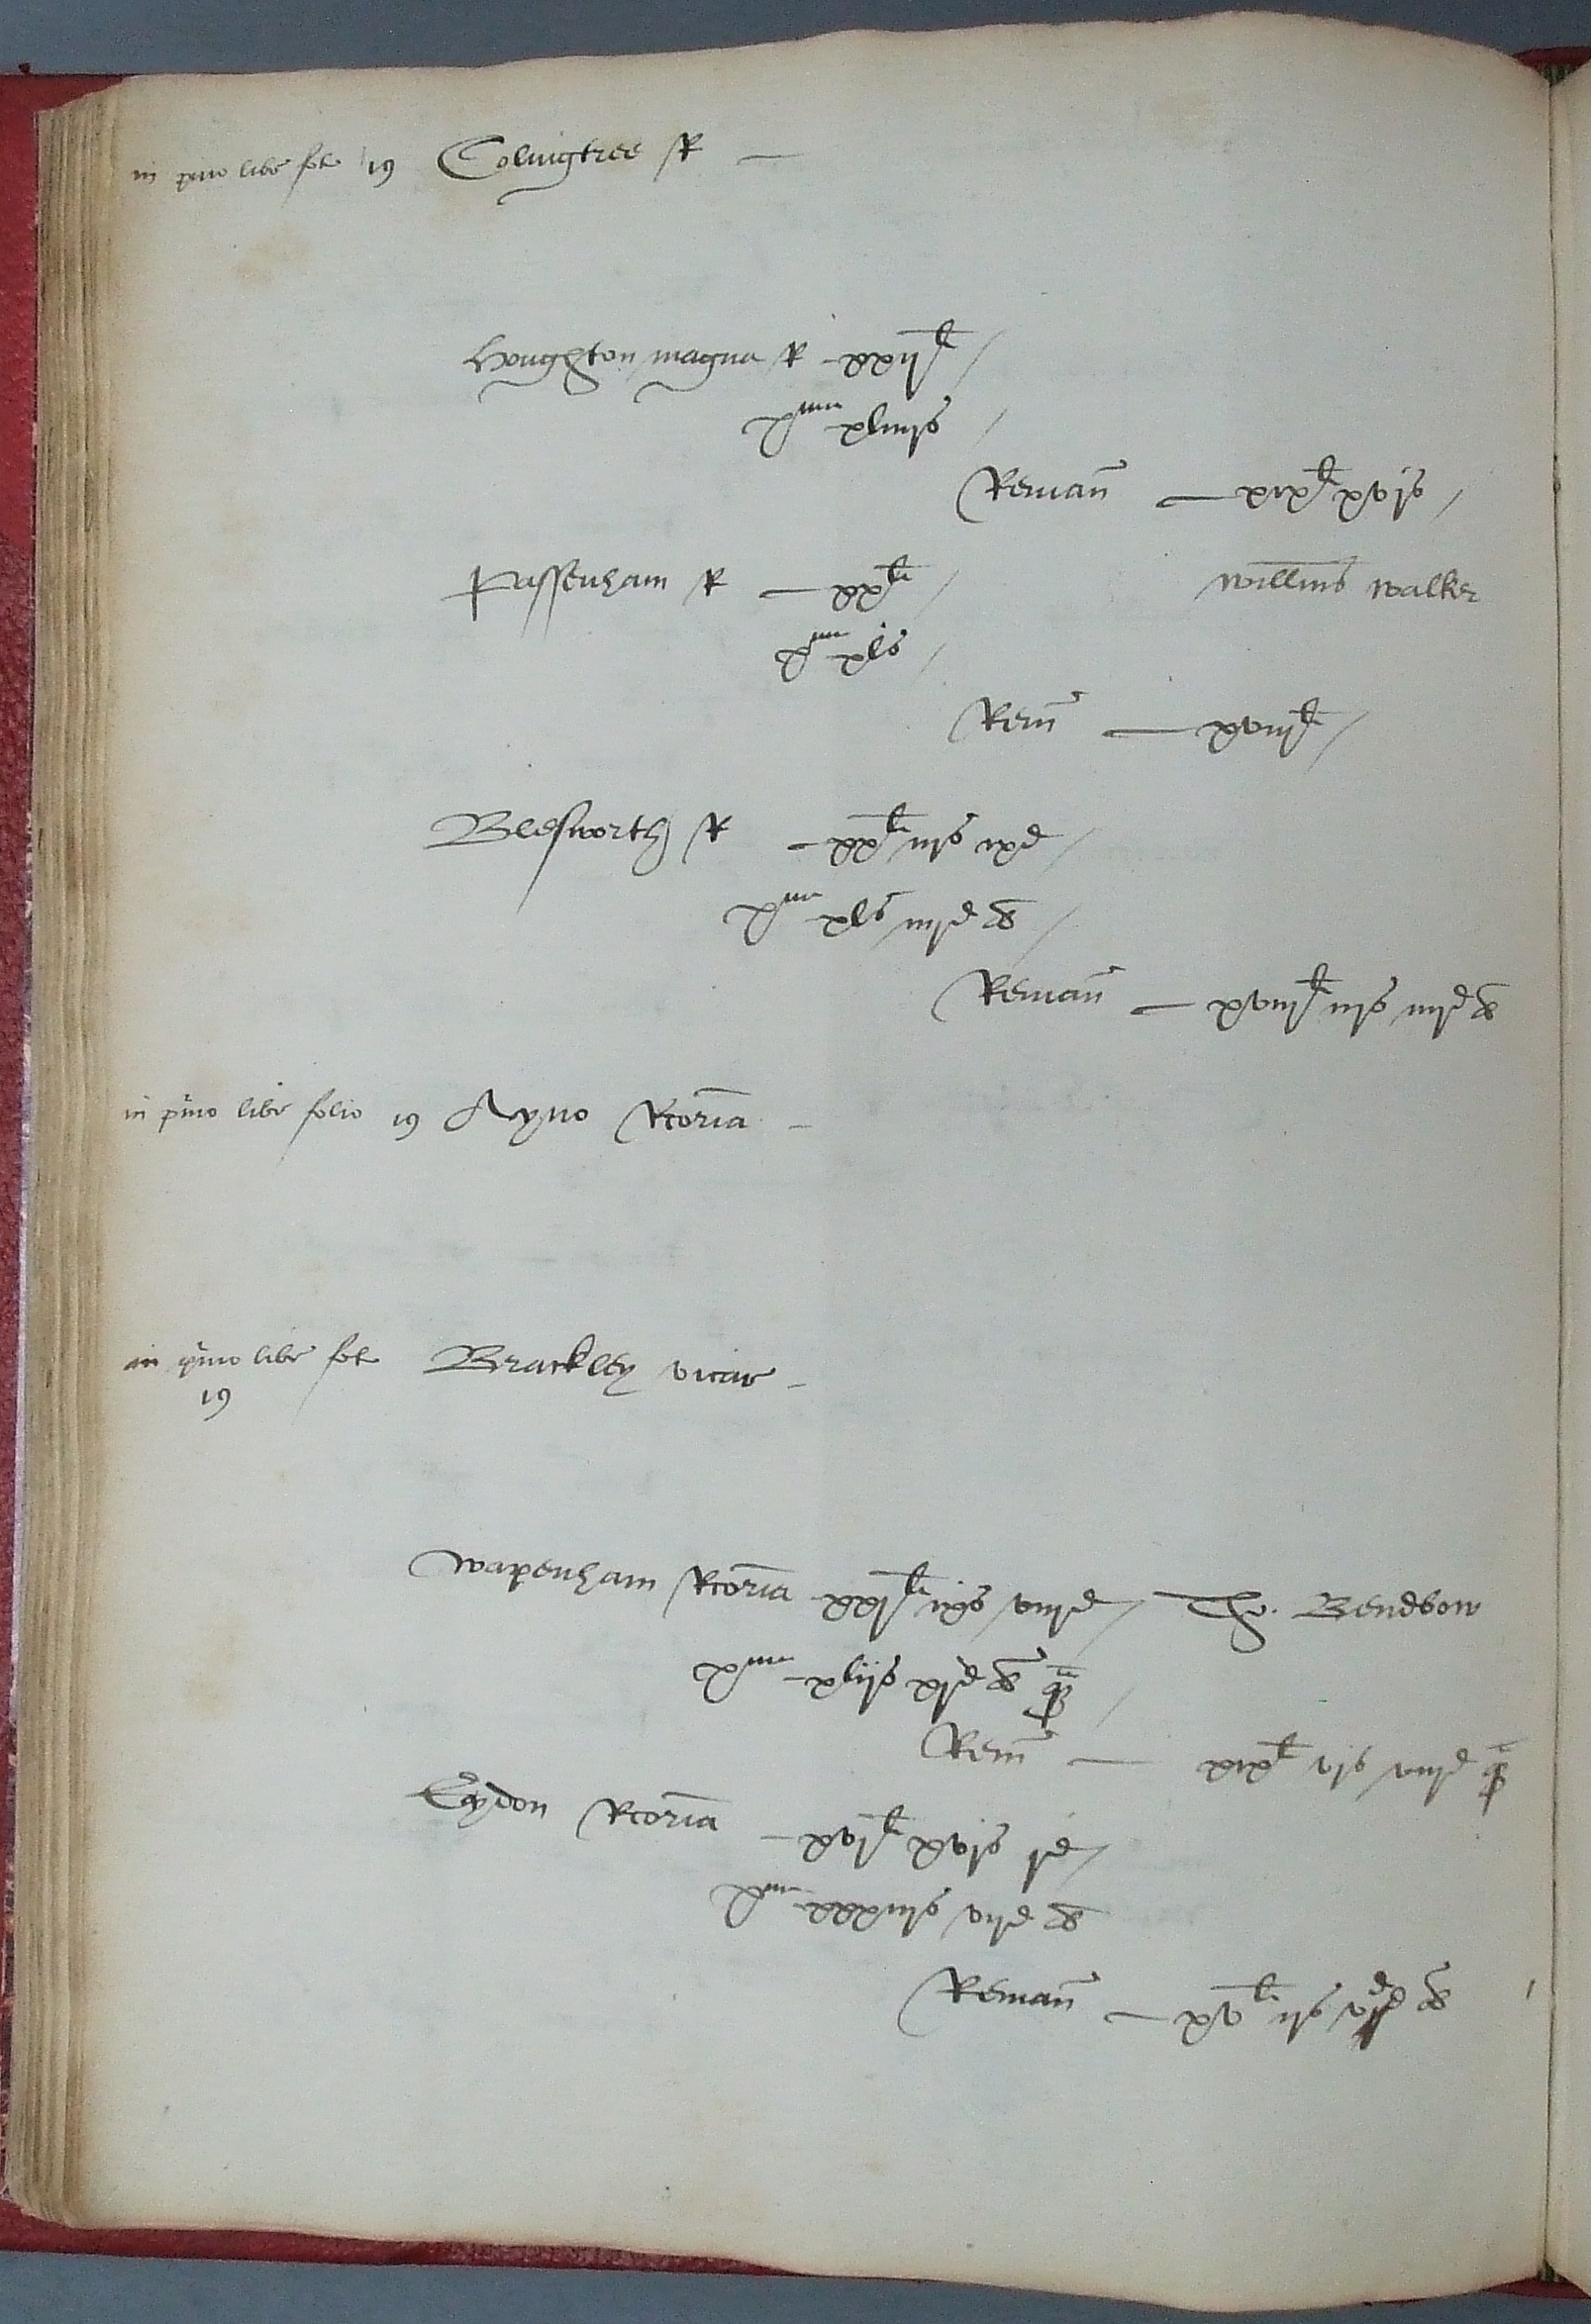 in p'mo libr fol 19 Colingtree R —
Houghton magna R — xxj li /
x ma — xliijs /
Remañ — xix li xvijs /
Passenham R — xx li / Willms Walker
x ma — xls /
Rem — xviij li /
Blesworth R — xx li iijs ixd /
x ma — xls iiijd ob /
Remañ — xviij li iijs iiijd ob
in p'mo libr folio 19 Ayno Rcoria —
in p'mo libr fol 19 Brackley vicar —
Wapenham Rcoria xxj li ixs viijd / Th. Bendbow
x ma — xlijs xjd ob q /
Rem — xix li vjs viijd q
Eydon Rcoria — xvj li xvjs jd /
x ma — xxxiijs vijd ob
Remañ — xv li ijs vd ob